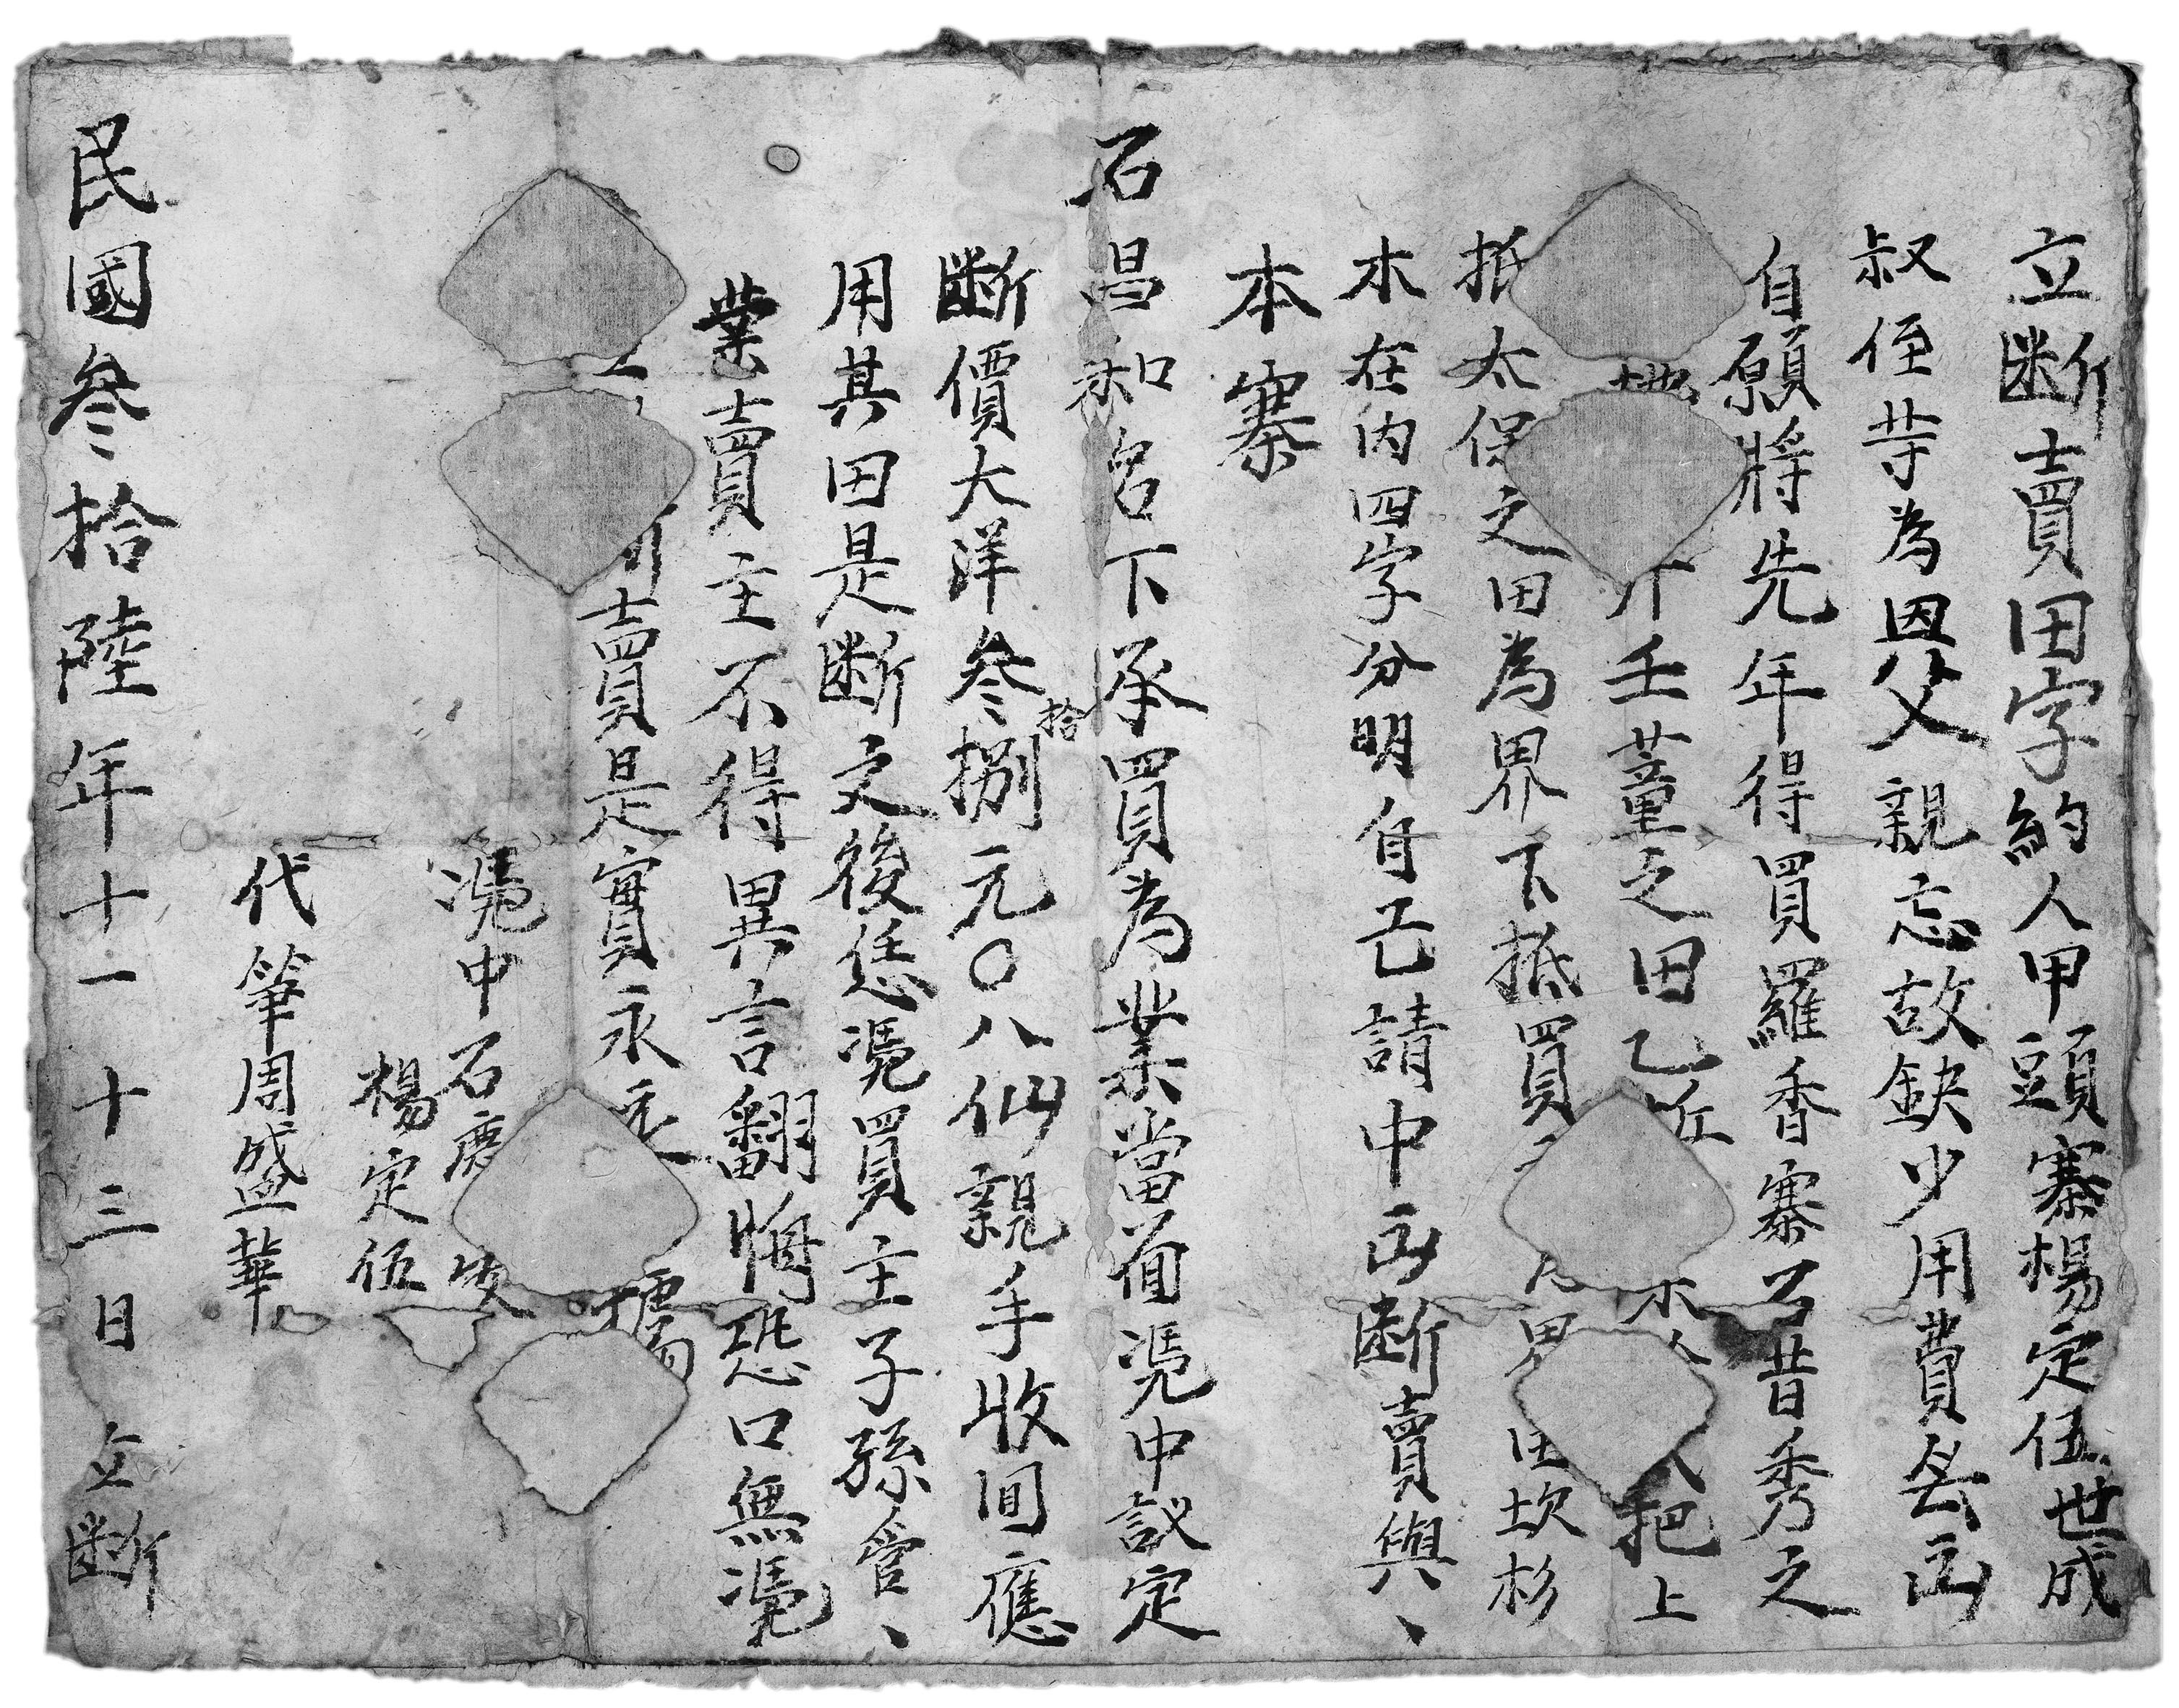 立斷賣田字約人甲頭寨楊定伍世成
叔侄䒭為因父親忘故缺少用費無出
自願將先年得買羅香寨石昔秀之
地 壬董之田乙坵 把上
抵太保之田為界下抵買 界 田坎杉
木在内四字分明自己請中出斷賣與、
本寨
石昌和名下承買為業當面凴中議定
斷價大洋叄拾捌元〇八仙親手收囬應
用其田是斷之後恁凴買主子孫管、
業賣主不得異言翻悔恐口無凴
賣是實永遠 據
凴中石
楊定伍
代筆周盛華
民國叄拾陸年十一十三日立斷